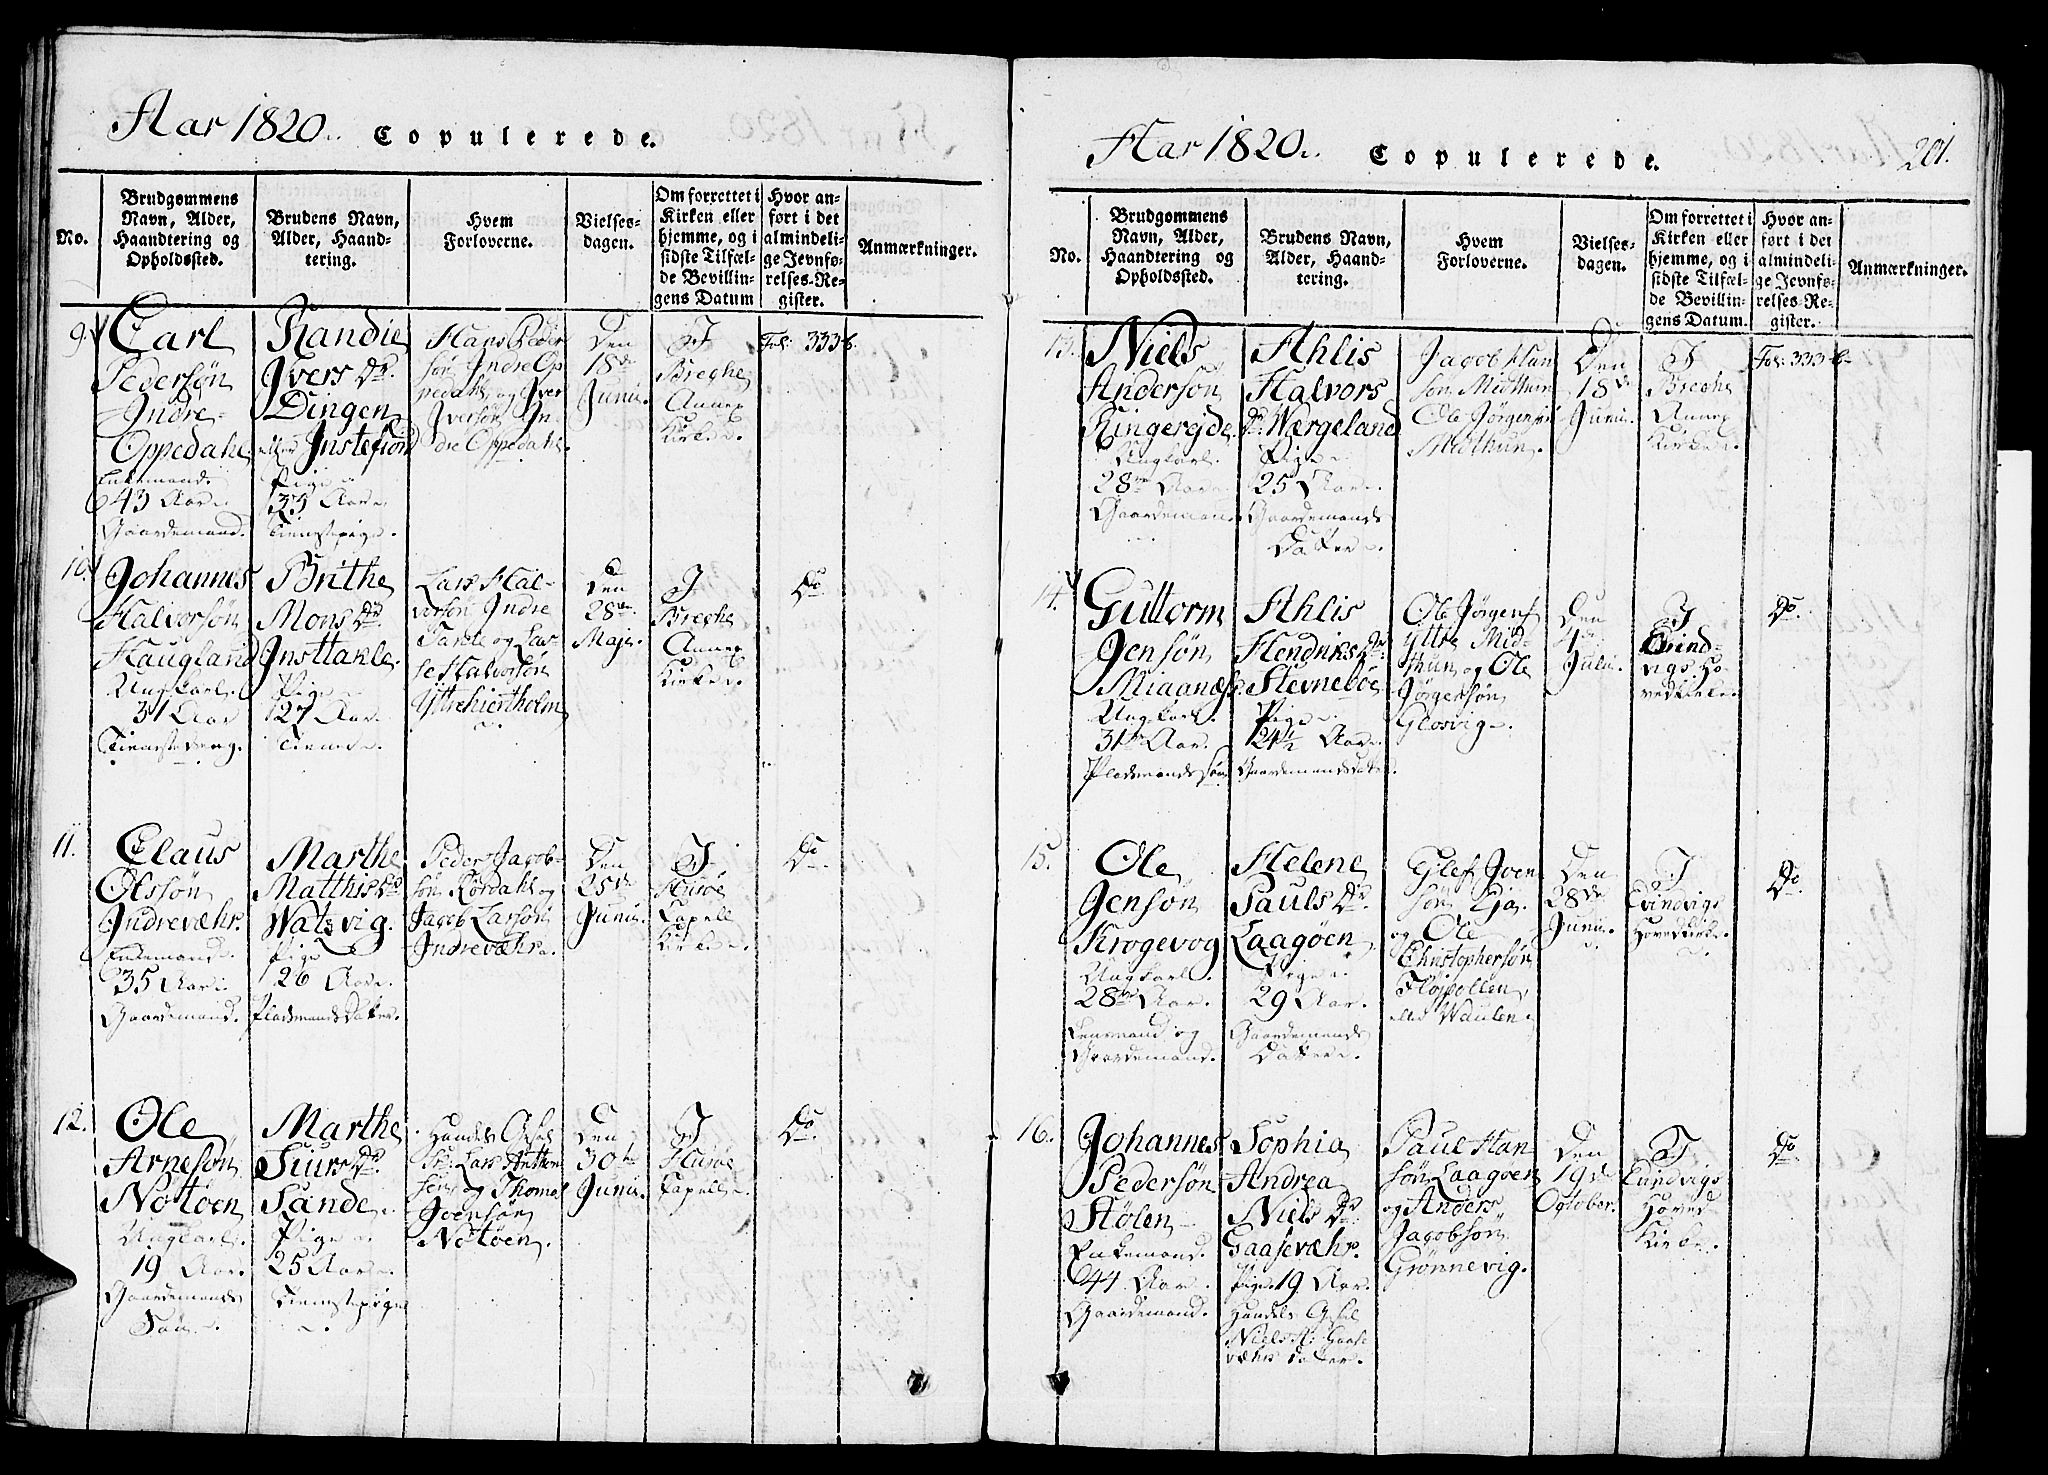 Aar 1820. Copulerede.
No.
Brudgommens
Navn, Alder,
Haandtering og
Opholdssted.
Brudens Navn,
Alder, Haand-
tering.
Hvem
Forloverne.
Vielses-
dagen.
Om forrettet i
Kirken eller
hjemme, og i
sidste Tilfæl-
de Bevillin-
gens Datum
Hvor an-
ført i det
almindeli-
ge Jevnfø-
relses-Re-
gister.
Anmærkninger.
9.
Carl
Pedersøn
Indre
Oppedahl
Enkemand
43 Aar.
Gaardemand.
Randie
Ivers Dr.
Dingen
eller Instefiord
Pige
33 Aar.
Tienstepige.
Hans Peder
søn Indre Op
pedahl, og Iver
Iversøn In-
dre Oppedahl.
Den
18de
Junii.
I
Breche
Annex
Kirke.
Fol: 333 b.
10.
Johannes
Halvorsøn
Haugland
Ungkarl.
31 Aar
Tienstedreng.
Brithe
Mons Dr.
Insttakle.
Pige
27 Aar.
Tienede.
Lars Hal-
vorsøn Indre
Takle og Lar-
s Halvorsøn
Yttrehiertholm
Den
28de
Maji.
I
Breche
Annex
Kirke.
Do
11.
Claus
Olssøn
Indrevæhr.
Enkemand.
35 Aar.
Gaardemand.
Marthe
Matthis Dr.
Watsvig.
Pige
26 Aar.
Pladsmands Datter.
Peder Jacob-
søn Kordahl og
Jacob Larsøn
Indrevæhr.
Den
25de
Junii.
I
Husøe
Capell
Kirke.
Do
12.
Ole
Arnesøn
Notøen
Ungkarl.
19 Aar.
Gaardemands
Søn.
Marthe
Siurs Dr.
Sande.
Pige
25 Aar.
Tienstepige
Handels
Lars Anthon
sen og Thomas
Joensøn
Notøen.
Den
30te
Junii.
I
Husøe
Capell.
Do.
Aar 1820. Copulerede.
201.
No.
Brudgommens
Navn, Alder,
Haandtering og
Opholdssted.
Brudens Navn,
Alder, Haand-
tering.
Hvem
Forloverne.
Vielses-
dagen.
Om forrettet i
Kirken eller
hjemme, og i
sidste Tilfæl-
de Bevillin-
gens Datum.
Hvor an-
ført i det
almindeli-
ge Jevnfø-
relses-Re-
gister.
Anmærkninger.
13.
Niels
Andersøn
Ringerejde.
Ungkarl.
28 Aar.
Gaardemand.
Ahlis
Halvors
Dr. Wærgeland
Pige
25 Aar.
Gaardemands
Datter.
Jacob Han
søn Midthun
Ole Jørgensøn
Midthun.
Den
18de
Junii.
I
Breche
Annex
Kirke.
Fol: 333 b.
14.
Guttorm
Jensøn
Miaanæs.
Ungkarl.
31 Aar.
Pladsmands søn
Ahlis
Hendriks Dr.
Stevneboe
Pige.
24 1/2 Aar.
Gaardemandsdatter.
Ole Jørgens
Yttre Mid-
thun og Ole
Jørgensøn
Glosvig.
Den
4de
Julii.
I
Evind-
vigs Ho-
vedkirke.
Do.
15.
Ole
Jensøn
Krogevog
Ungkarl.
28 Aar.
Lensmand og
Gaardemand.
Helene
Pauls Dr.
Laagøen
Pige.
29 Aar.
Gaardemands
Datter.
Elef Joen
søn Eja.
og Ole
Christophersøn
Fløjpollen,
eller Waulen.
Den
28de
Junii.
I
Evindvigs
Hovedkirke.
Do
16.
Johannes
Pedersøn
Stølen
Enkemand.
44 Aar.
Gaardemand.
Sophia
Andrea
Niels Dr.
Gaasevæhr.
Pige 19 Aar.
Handels
Niels Gaase
væhrs Datter.
Paul Han
søn Laagøen
og Anders
Jacobsøn
Grønnevig.
Den
19de
October.
I
Evindvigs
Hoved
Kirke.
Do.